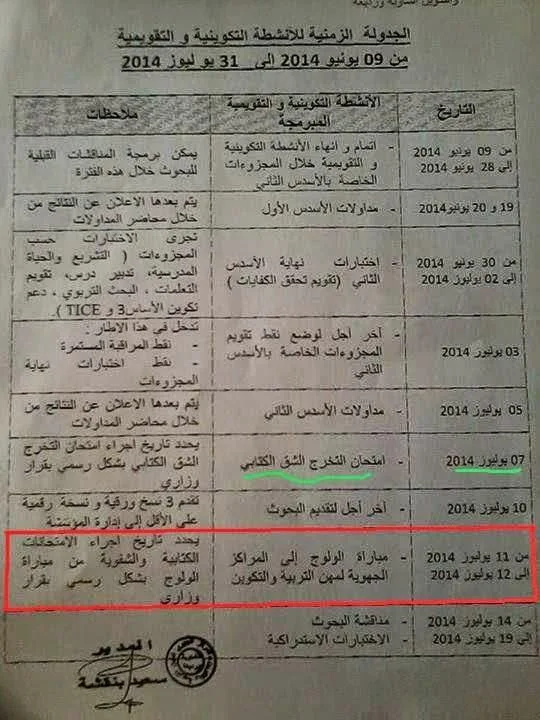 الجدولة الزمنية للأنشطة التكوينية و التقويمية
من 09 يونيو 2014 إلى 31 يوليوز 2014
التاريخ
الأنشطة التكوينية و التقويمية
المبرمجة
ملاحظات
من 09 يونيو 2014
إلى 28 يونيو 2014
- اتمام و انهاء الأنشطة التكوينية
و التقويمية خلال المجزوءات
الخاصة بالأسدس الثاني
يمكن برمجة المناقشات القبلية
للبحوث خلال هذه الفترة
19 و 20 يونيو2014
- مداولات الأسدس الأول
يتم بعدها الاعلان عن النتائج من
خلال محاضر المداولات
من 30 يونيو 2014
إلى 02 يوليوز 2014
- اختبارات نهاية الأسدس
الثاني (تقويم تحقق الكفايات )
تجرى الاختبارات حسب
المجزوءات ( التشريع والحياة
المدرسية، تدبير درس، تقويم
التعلمات ، البحث التربوي ، دعم
تكوين الأساس3 و TICE ).
03 يوليوز 2014
- آخر أجل لوضع نقط تقويم
المجزوءات الخاصة بالأسدس
الثاني
تدخل في هذا الاطار :
- نقط المراقبة المستمرة
- نقط اختبارات نهاية
المجزوءات
05 يوليوز 2014
- مداولات الأسدس الثاني
يتم بعدها الاعلان عن النتائج من
خلال محاضر المداولات
07 يوليوز 2014
- امتحان التخرج الشق الكتابي
يحدد تاريخ اجراء امتحان التخرج
الشق الكتابي بشكل رسمي بقرار
وزاري
10 يوليوز 2014
- آخر أجل لتقديم البحوث
تقدم 3 نسخ ورقية و نسخة رقمية
على الأقل إلى إدارة المؤسسة
من 11 يوليوز 2014
إلى 12 يوليوز 2014
- مباراة الولوج إلى المراكز
الجهوية لمهن التربية والتكوين
يحدد تاريخ اجراء الامتحانات
الكتابية والشفوية من مباراة
الولوج بشكل رسمي بقرار
وزاري
من 14 يوليوز 2014
إلى 19 يوليوز 2014
- مناقشة البحوث
- الاختبارات الاستدراكية
المدير
سعيد بنقشة